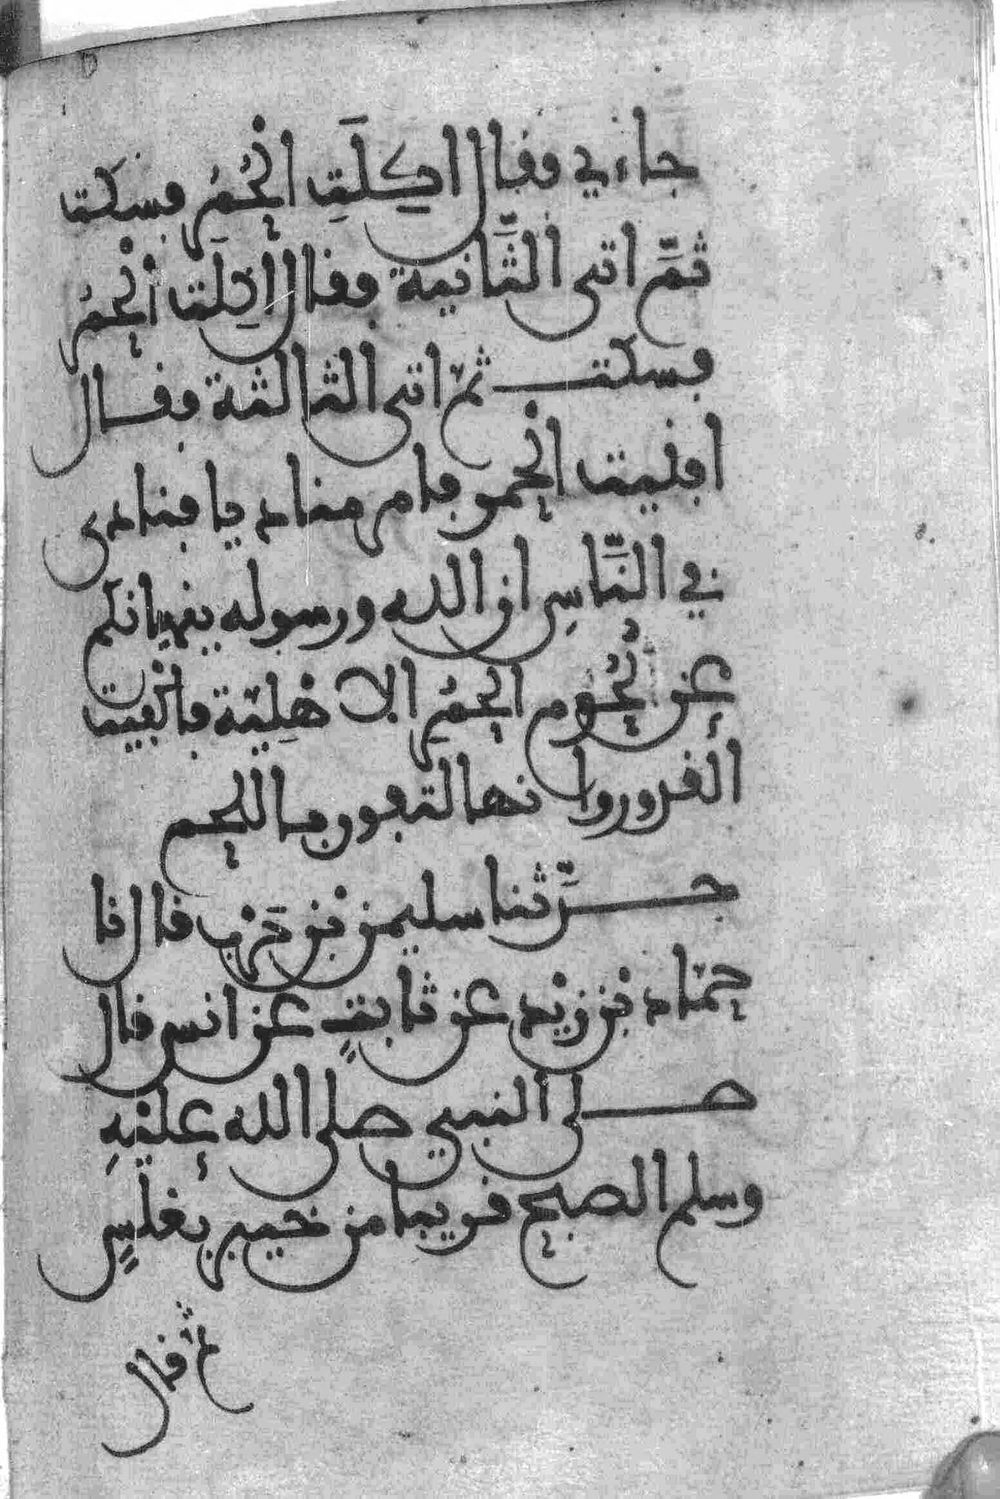 جاءٍ فقال اكِلَتِ الْحُمُرُ فسكت
ثمَّ اتى الثَّانية فقال اكِلَت الْحُمُرُ
فسكت ثمّ اتى الثالثة فقال
افنيت الْحمر فامر مناديا فنادى
في النَّاسِ ان الله ورسوله ينهيانكم
عن لُحُوم الحُمُرِ الاهْلِيّة فاكْفِيت
القدور وانها لتفور باللحم
حدَّثنا سليمن بْن حَرْب قال نا
حمّاد بْن زيْد عن ثابتٍ عن انس قال
صلى النبي صلى الله عليْهِ
وسلم الصبح قريبا من خيبر بغلَسٍ
ثم قال